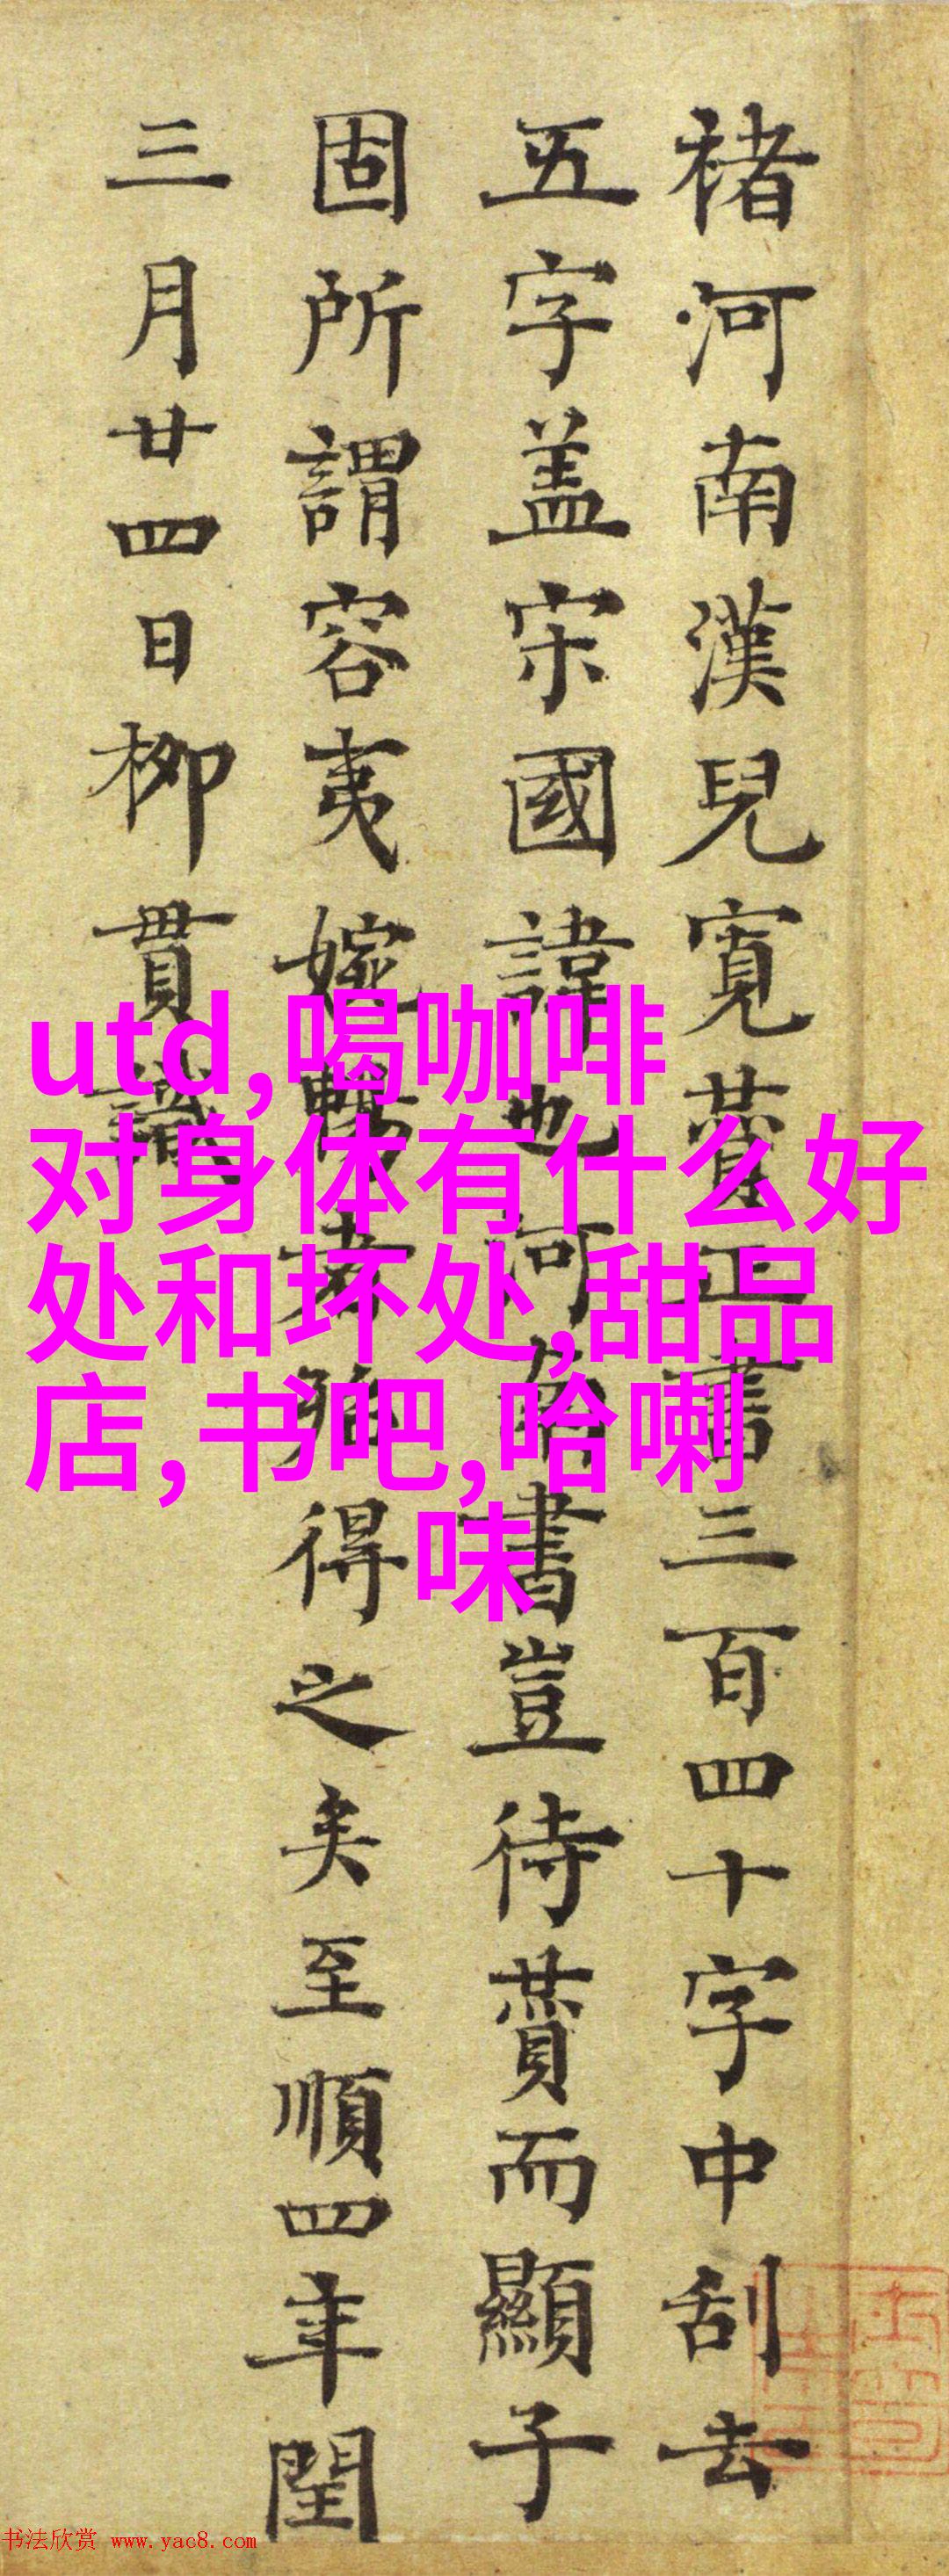 褚河南漢兒寬贊正書三百四十字中刮去
五字盖宋國諱也河南書豈待贊而顯子
固所謂容夷婉暢者殆得之矣至順四年閏
三月廿四日柳貫識
utd,喝咖啡
对身体有什么好
处和坏处,甜品
店,书吧,哈喇
味
书法欣赏 www.yac8.com